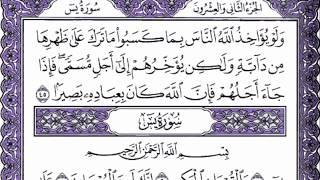 سُورَةُ يسٓ الجُزْءُ الثَّانِي وَالعِشْرُونَ
وَلَوْ يُؤَاخِذُ ٱللَّهُ ٱلنَّاسَ بِمَا كَسَبُوا۟ مَا تَرَكَ عَلَىٰ ظَهْرِهَا
مِن دَآبَّةٍ وَلَٰكِن يُؤَخِّرُهُمْ إِلَىٰٓ أَجَلٍ مُّسَمًّى ۖ فَإِذَا
جَآءَ أَجَلُهُمْ فَإِنَّ ٱللَّهَ كَانَ بِعِبَادِهِۦ بَصِيرًۢا ٤٥
سُورَةُ يسٓ
بِسْمِ ٱللَّهِ ٱلرَّحْمَٰنِ ٱلرَّحِيمِ